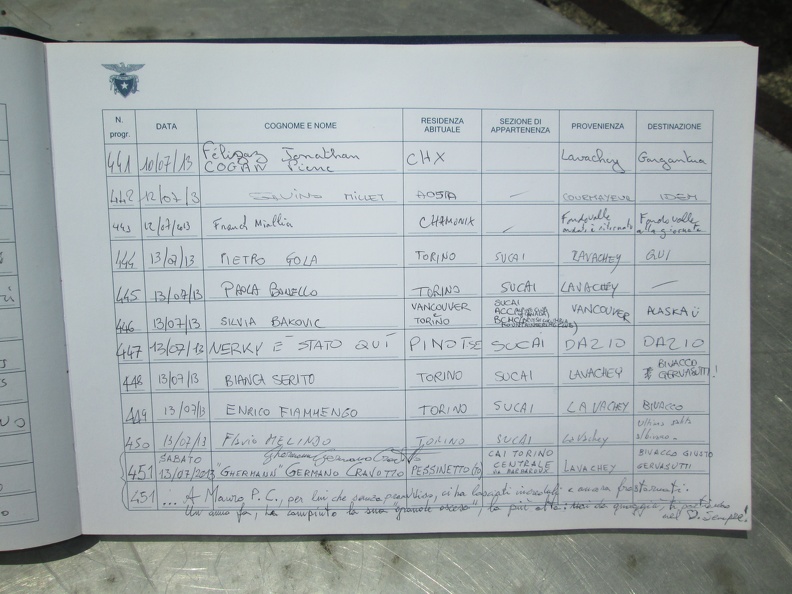 N. progr. DATA COGNOME E NOME RESIDENZA ABITUALE SEZIONE DI APPARTENENZA PROVENIENZA DESTINAZIONE
441 10/07/13 Jonathan CHX Lavachey Gargantua
COGAN Pierre
442 12/07/13 MILLET AOSTA COURMAYEUR IDEM
443 12/07/2013 Franch Miallia CHAMONIX Fondovalle Fondovalle
444 13/07/13 PIETRO GOLA TORINO SUCAI LAVACHEY QUI
445 13/07/13 PAOLA BONELLO TORINO SUCAI LAVACHEY —
446 13/07/13 SILVIA BAKOVIC VANCOUVER e TORINO SUCAI VANCOUVER ALASKA
447 13/07/13 NERKY E' STATO QUI PINOTSE SUCAI DAZIO DAZIO
448 13/07/13 BIANCA SERITO TORINO SUCAI LAVACHEY BIVACCO GERVASUTTI!
449 13/07/13 ENRICO FIAMMENGO TORINO SUCAI LAVACHEY BIVACCO
450 13/07/13 Flavio MELINDO TORINO SUCAI Lavachey ultimo salto
451 SABATO 13/07/2013 "GHERMANN" GERMANO CRAVOTTO PESSINETTO (TO) CAI TORINO CENTRALE LAVACHEY BIVACCO GIUSTO GERVASUTTI
451 ... A Mauro P. C., per lui che senza preavviso, ci ha lasciati increduli e ancora frastornati.
Un anno fa, ha compiuto la sua "grande ascesa", la più